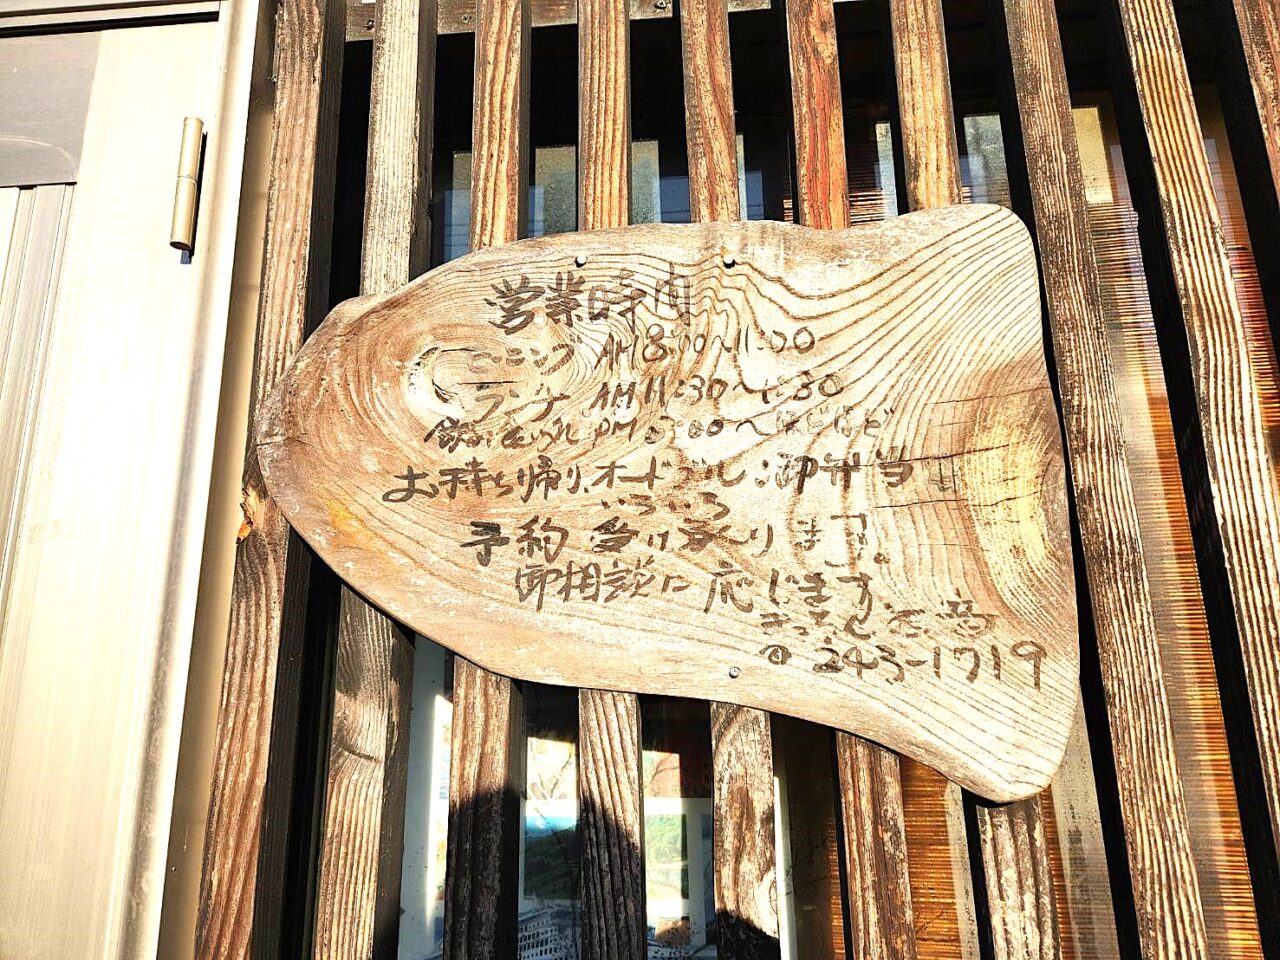 営業時間
モーニング AM8:00〜11:00
ランチ AM11:30〜1:30
PM 〜ほどほど
お持ち帰り、オードブル:御弁当
いろいろ
予約受け承ります。
御相談に応じます。
☎243-1719